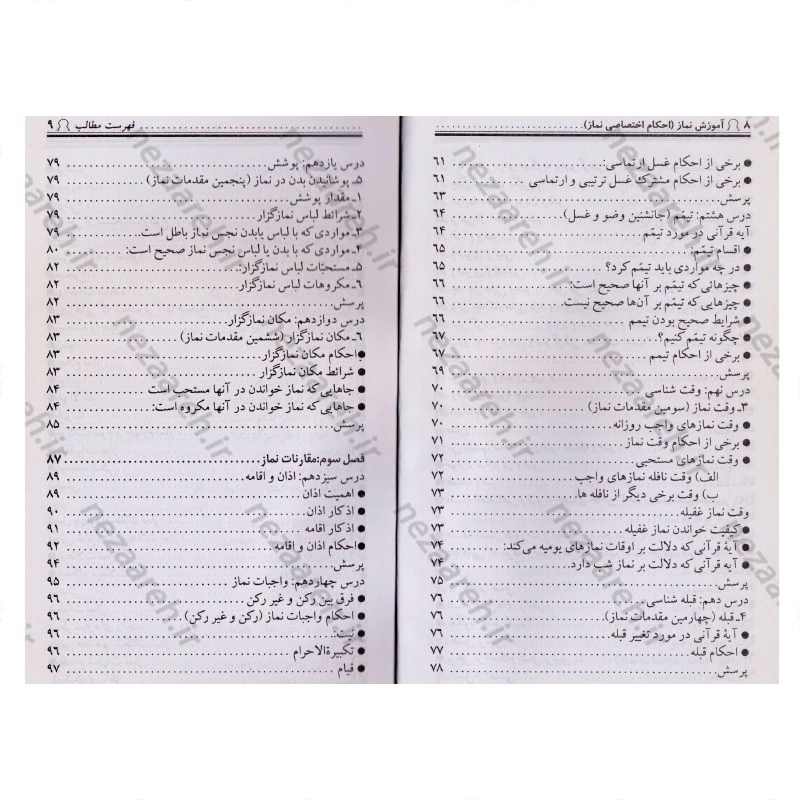 ۸ آموزش نماز (احکام اختصاصی نماز)
● برخی از احکام غسل ارتماسی: ۶۱
● برخی از احکام مشترک غسل ترتیبی و ارتماسی ۶۱
پرسش ۶۳
درس هشتم: تیمّم (جانشنین وضو و غسل) ۶۴
آیه قرآنی در مورد تیمّم ۶۴
● اقسام تیمّم ۶۵
● در چه مواردی باید تیمّم کرد؟ ۶۵
● چیزهائی که تیمّم بر آنها صحیح است: ۶۶
● چیزهایی که تیمّم بر آن‌ها صحیح نیست. ۶۶
● شرایط صحیح بودن تیمم ۶۶
● چگونه تیمّم کنیم؟ ۶۷
● برخی از احکام تیمم ۶۷
پرسش ۶۹
درس نهم: وقت شناسی ۷۰
۳ـ وقت نماز (سومین مقدمات نماز) ۷۰
● وقت نمازهای واجب روزانه ۷۰
● برخی از احکام وقت نماز ۷۱
● وقت نمازهای مستحبی ۷۲
الف) وقت نافله نمازهای واجب ۷۲
ب) وقت برخی دیگر از نافله ها ۷۳
وقت نماز غفیله ۷۳
● کیفیت خواندن نماز غفیله ۷۳
● آیهٔ قرآنی که دلالت بر اوقات نمازهای یومیه می‌کند: ۷۴
● آیه قرآنی که دلالت بر نماز شب دارد ۷۴
پرسش ۷۵
درس دهم: قبله شناسی ۷۶
۴ـ قبله (چهارمین مقدمات نماز) ۷۶
● آیهٔ قرآنی در مورد تغییر قبله ۷۶
● احکام قبله ۷۷
پرسش ۷۸
فهرست مطالب ۹
درس یازدهم: پوشش ۷۹
۵ـ پوشانیدن بدن در نماز (پنجمین مقدمات نماز) ۷۹
۱ـ مقدار پوشش ۷۹
۲ـ شرائط لباس نمازگزار ۷۹
۳ـ مواردی که با لباس یابدن نجس نماز باطل است ۷۹
۴ـ مواردی که با بدن یا لباس نجس نماز صحیح است: ۸۰
۵ـ مستحبّات لباس نمازگزار: ۸۲
۶ـ مکروهات لباس نمازگزار ۸۲
پرسش ۸۲
درس دوازدهم: مکان نمازگزار ۸۳
۶ـ مکان نمازگزار (ششمین مقدمات نماز) ۸۳
● احکام مکان نمازگزار ۸۳
● شرائط مکان نمازگزار ۸۳
● جاهایی که نماز خواندن در آنها مستحب است ۸۴
● جاهایی که نماز خواندن در آنها مکروه است: ۸۴
پرسش ۸۵
فصل سوم: مقارنات نماز ۸۷
درس سیزدهم: اذان و اقامه ۸۹
● اهمیت اذان ۸۹
● اذکار اذان ۹۰
● اذکار اقامه ۹۱
● احکام اذان و اقامه ۹۲
پرسش ۹۴
درس چهاردهم: واجبات نماز ۹۵
● فرق بین رکن و غیر رکن ۹۶
● احکام واجبات نماز (رکن و غیر رکن) ۹۶
● نیت: ۹۶
● تکبیرةالاحرام ۹۶
● قیام ۹۷
nezaareh.ir